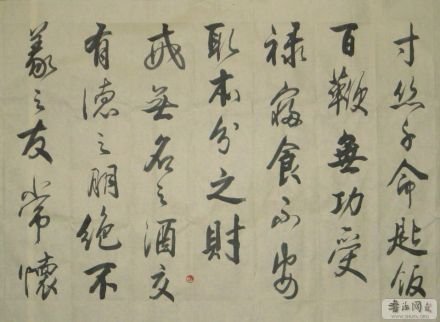 寸丝千命匙饭
百鞭无功受
禄寝食不安
取本分之财
戒无名之酒交
有德之朋绝不
義之友常懷
書法网